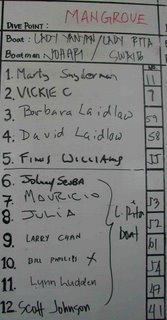 DIVE POINT: MANGROVE
Boat: LADY YANYAN/LADY RITA
Boatman JUHARI / SUAIB
1. Marty Snyderman 11
2. VICKIE C 7
3. Barbara Laidlaw 59
4. David Laidlaw 58
5. FINUS WILLIAMS 55
6. Johnny SEUBA
7. MOURICIO 53
8. JULIA 52
9. LARRY CHAN 61
10. BILL PHILLIPS X 51
11. Lynn Ludden 47
12. Scott Johnson 41
boat